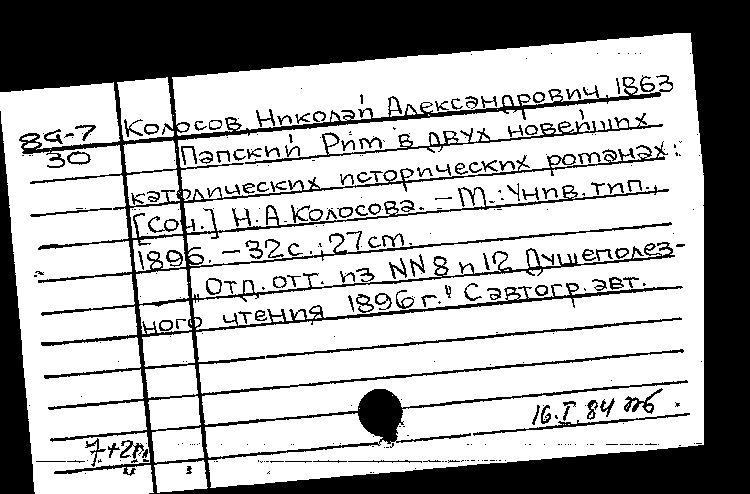 Колосов, Николай Александрович, 1863
84-7
30
Папский Рим в двух новейших
католических исторических романах:
[Соч.] Н.А. Колосова. – М.: Унив. тип.,
1896. – 32 с.; 27 см.
„Отд. отт. из NN 8 и 12 Душеполез-
ного чтения 1896 г." С автогр. авт.
16.I.84